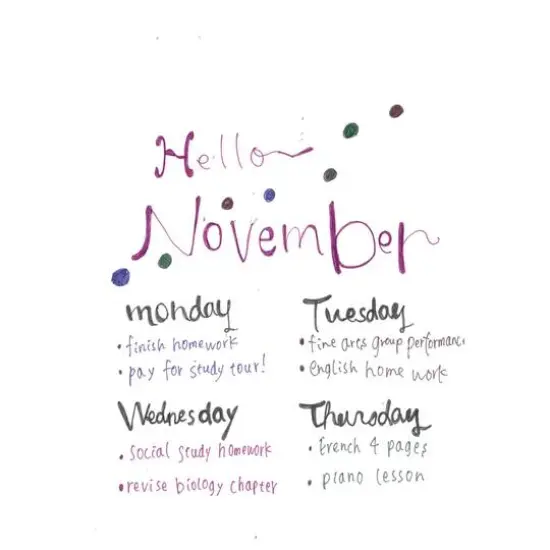 Hello
November
monday
• finish homework
• pay for study tour!
Tuesday
• fine arts group performance
• english home work
Wednesday
• social study homework
• revise biology chapter
Thursday
• french 4 pages
• piano lesson